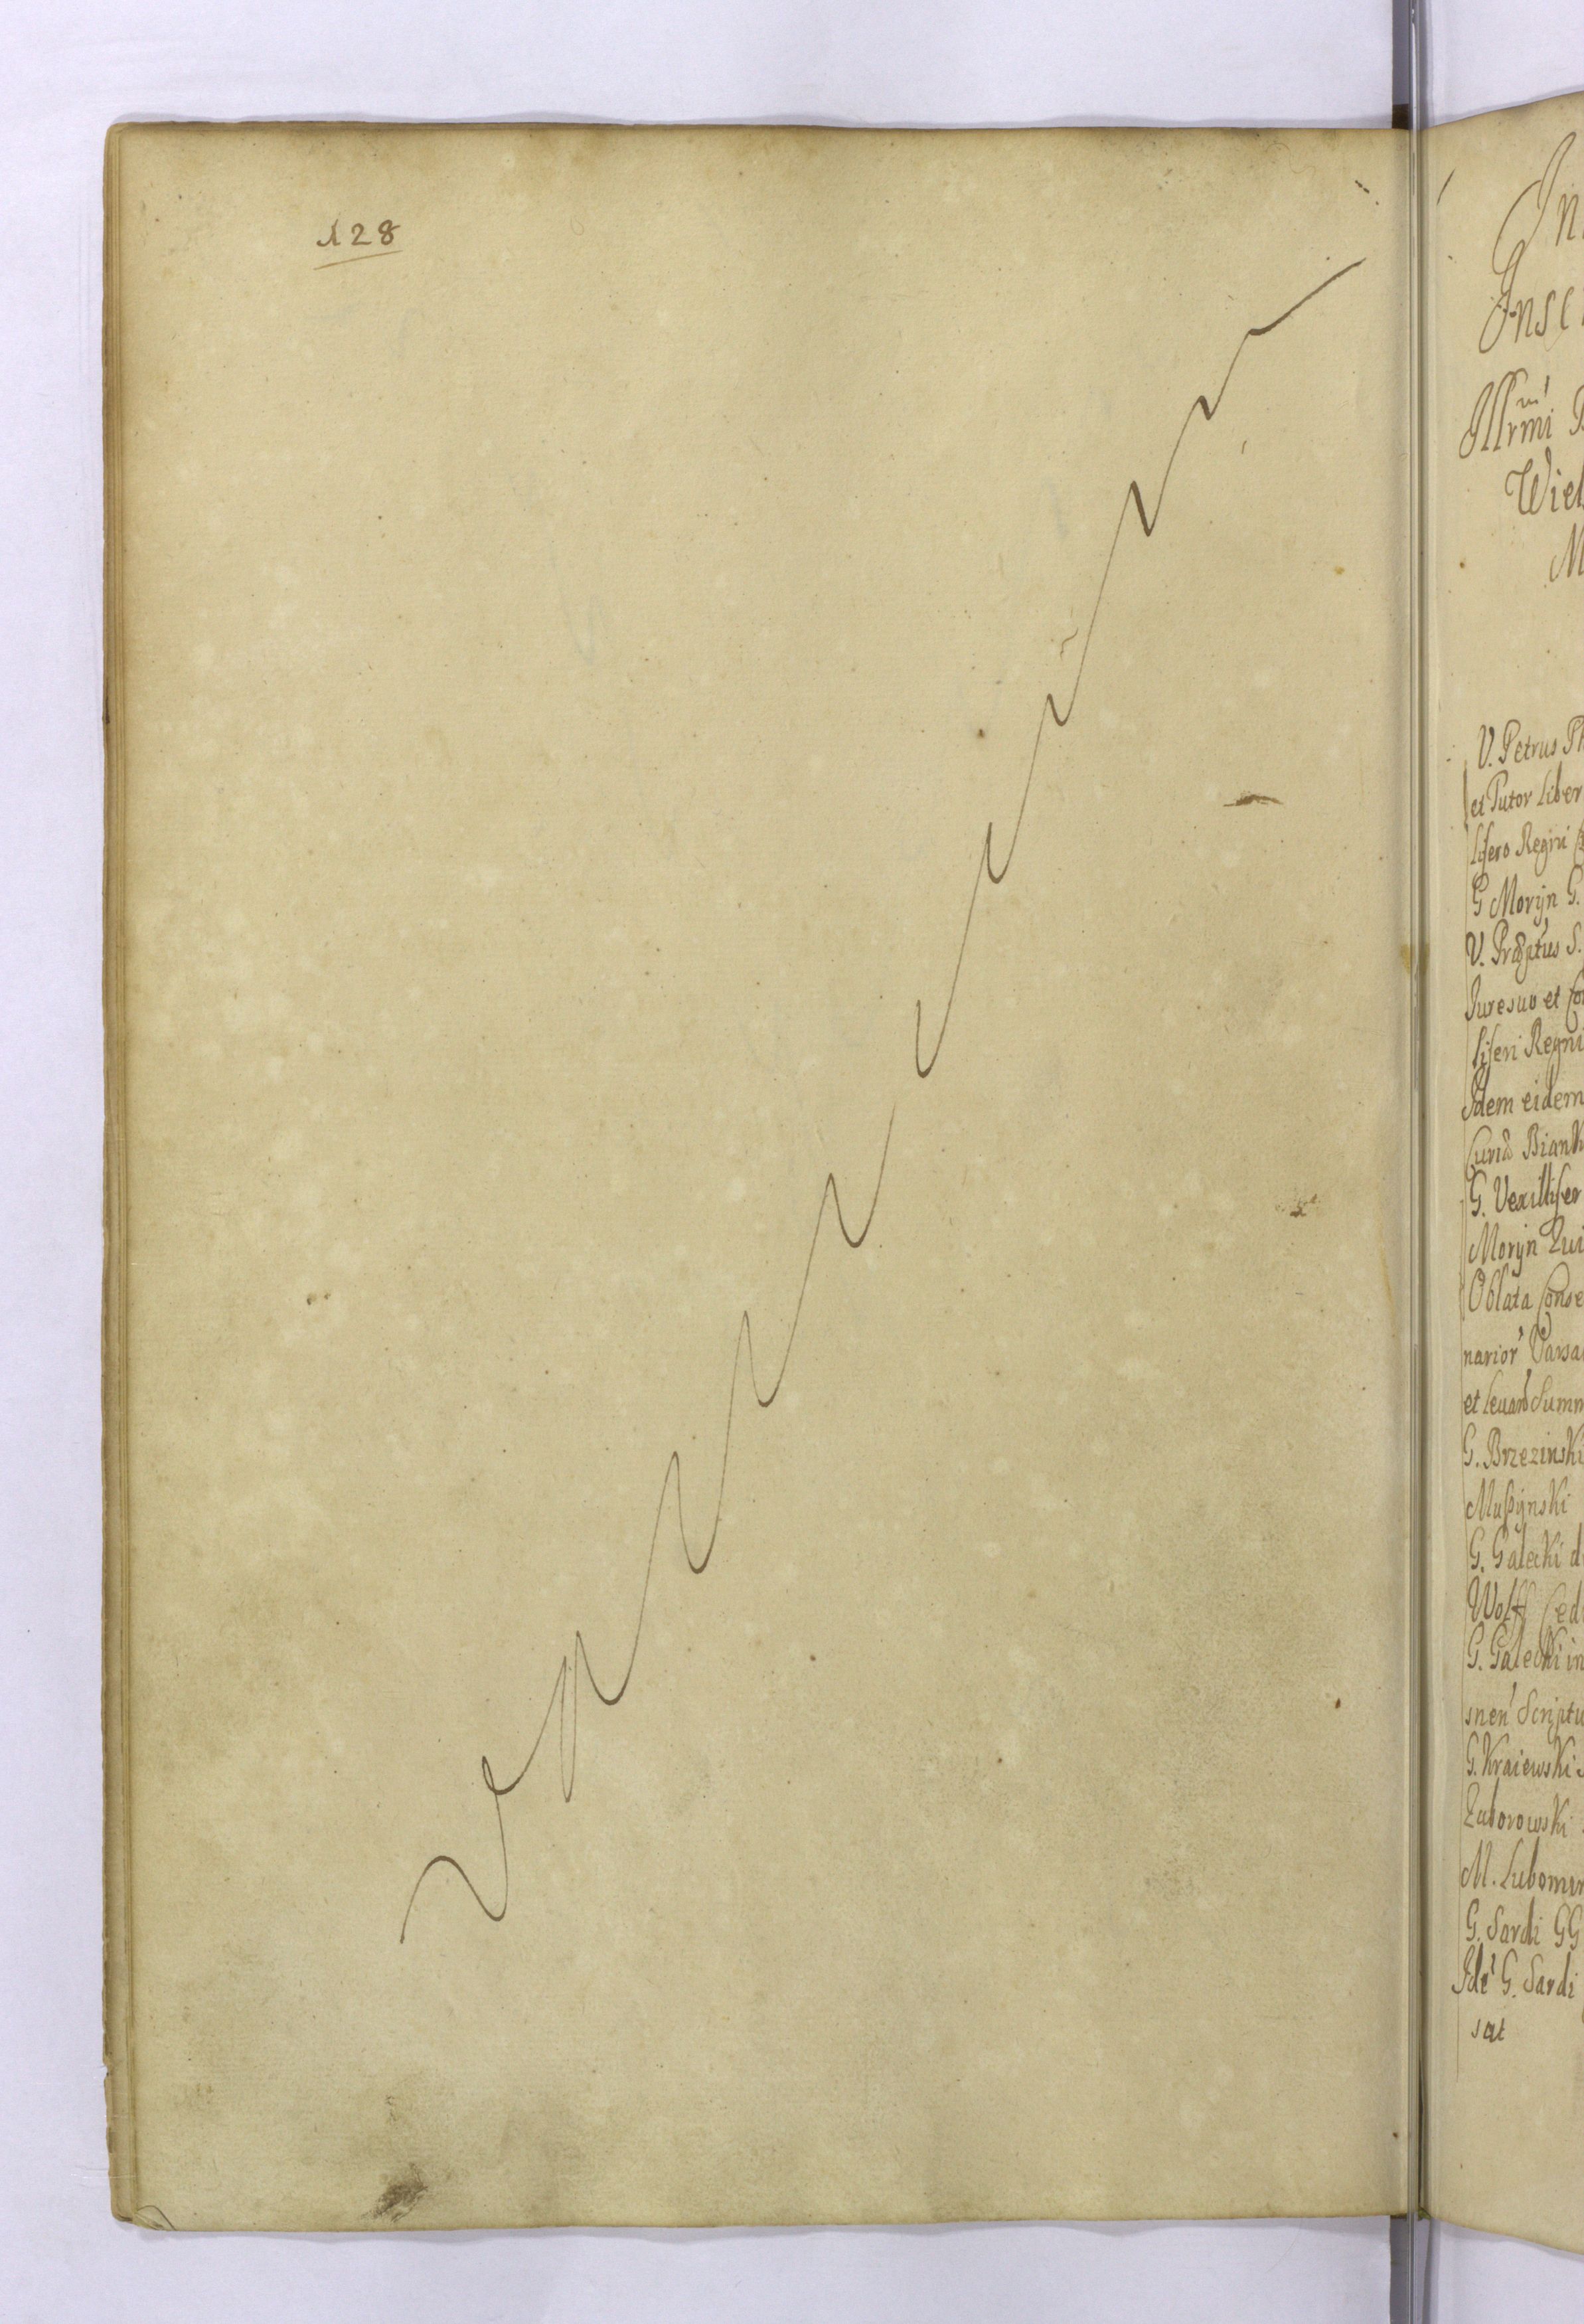 128
In
Insc
Illrmi
Wiel
M
V. Petrus Ph
et Tutor Liber
lifero Regni
G Moryn G.
V. Præptus S.
Jure suo et Con
liferi Regni
Idem eidem
Curiæ Biank
G. Vexillifer
Moryn Zui
Oblata Conse
narior Varsa
et levand Summ
G. Brzezinski
Muszynski
G. Galecki d
Wolff Ced
G. Galecki in
snen Scriptu
G. Kraiewski
Zaborowski
M. Lubomir
G. Sardi GG
Ide G. Sardi
sat